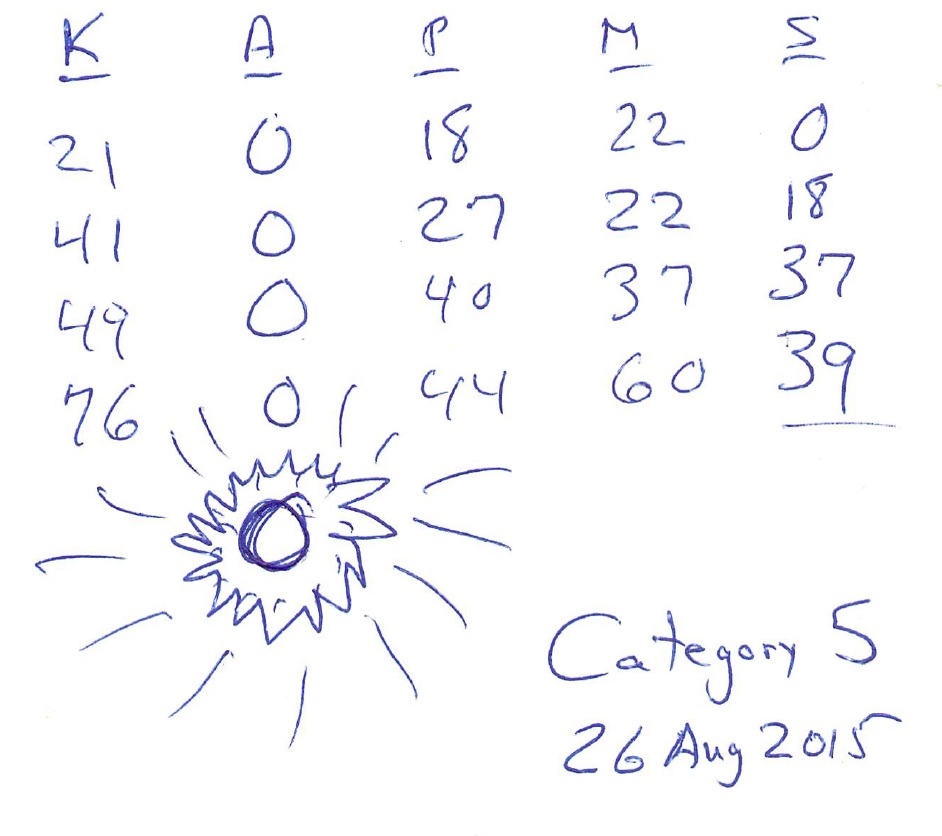 K A P M S
21 0 18 22 0
41 0 27 22 18
49 0 40 37 37
76 0 44 60 39
0
Category 5
26 Aug 2015